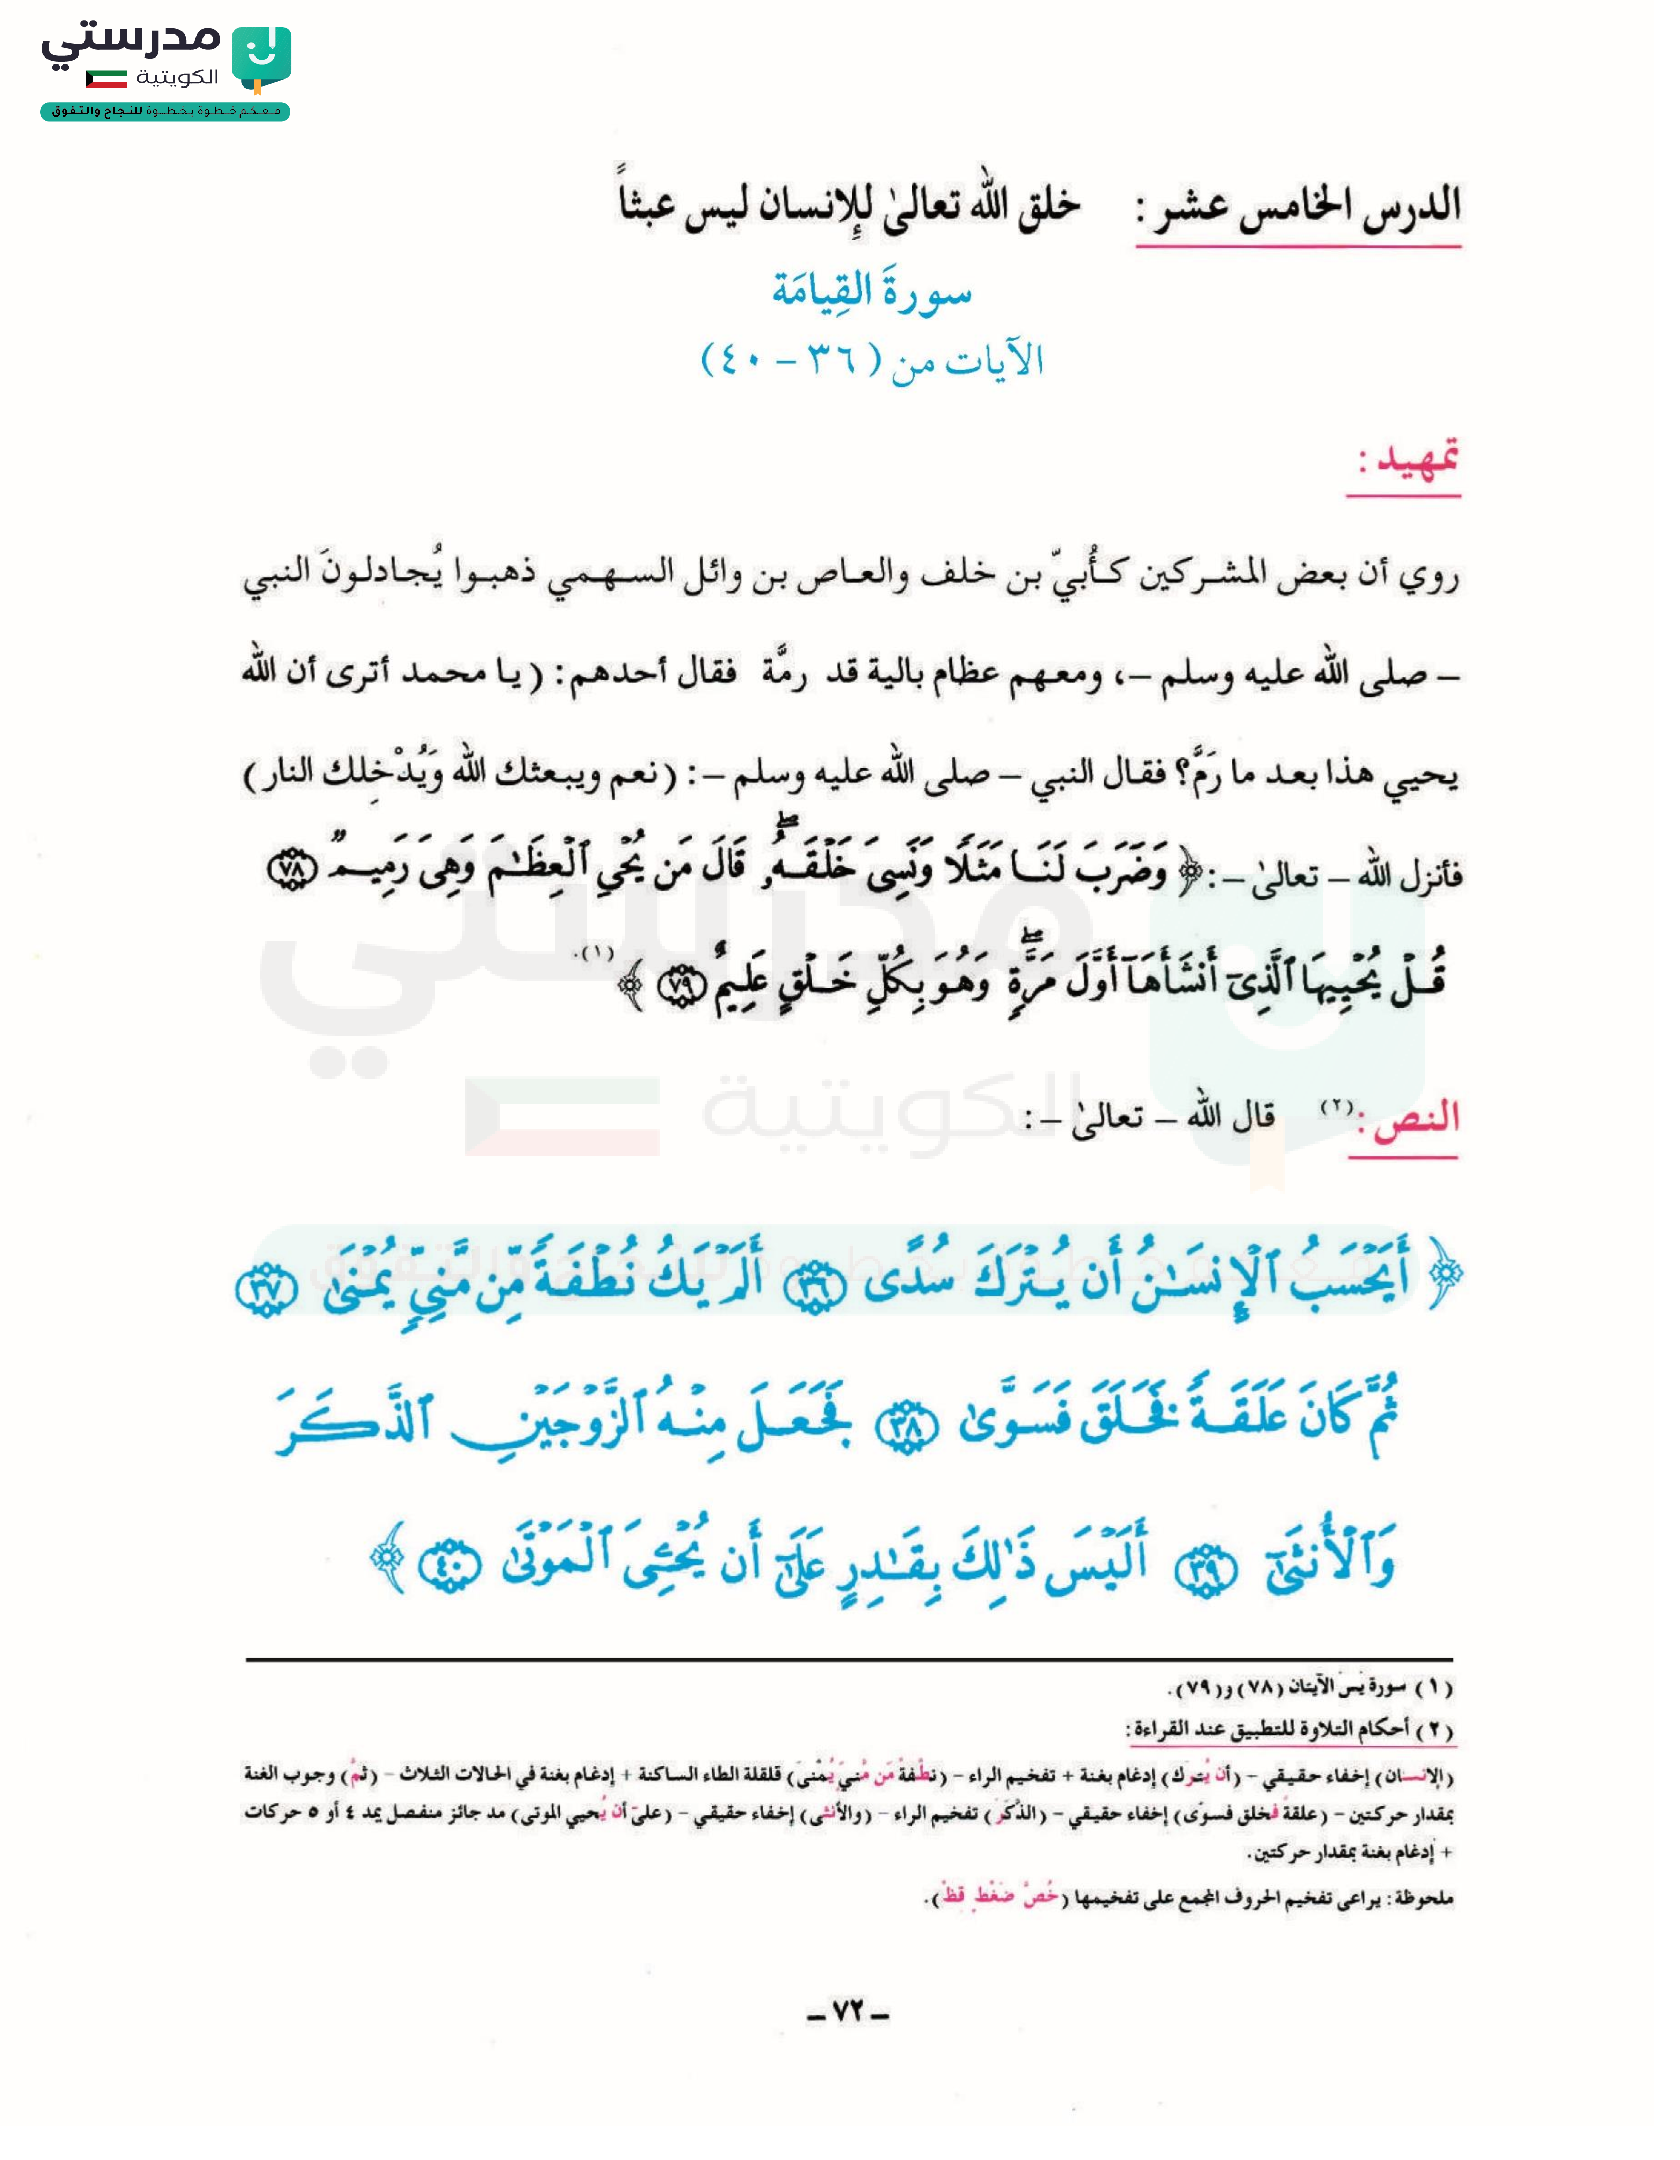 مدرستي
الكويتية
معكم خطوة بخطوة للنجاح والتفوق
الدرس الخامس عشر : خلق الله تعالىٰ للإِنسان ليس عبثاً
سورةَ القِيامَة
الآيات من ( ٣٦ – ٤٠ )
تمهيد :
روي أن بعض المشركين كأُبيّ بن خلف والعاص بن وائل السهمي ذهبوا يُجادلونَ النبي
– صلى الله عليه وسلم –، ومعهم عظام بالية قد رمَّة فقال أحدهم: ( يا محمد أترى أن الله
يحيي هذا بعد ما رَمَّ؟ فقال النبي – صلى الله عليه وسلم –: ( نعم ويبعثك الله وَيُدْخِلك النار )
فأنزل الله – تعالىٰ –: ﴿ وَضَرَبَ لَنَا مَثَلًا وَنَسِىَ خَلْقَهُۥۖ قَالَ مَن يُحْىِ ٱلْعِظَٰمَ وَهِىَ رَمِيمٌ ٧٨
قُلْ يُحْيِيهَا ٱلَّذِىٓ أَنشَأَهَآ أَوَّلَ مَرَّةٍۖ وَهُوَ بِكُلِّ خَلْقٍ عَلِيمٌ ٧٩ ﴾ (١).
النص : (٢) قال الله – تعالىٰ –:
﴿ أَيَحْسَبُ ٱلْإِنسَٰنُ أَن يُتْرَكَ سُدًى ٣٦ أَلَمْ يَكُ نُطْفَةً مِّن مَّنِىٍّ يُمْنَىٰ ٣٧
ثُمَّ كَانَ عَلَقَةً فَخَلَقَ فَسَوَّىٰ ٣٨ فَجَعَلَ مِنْهُ ٱلزَّوْجَيْنِ ٱلذَّكَرَ
وَٱلْأُنثَىٰٓ ٣٩ أَلَيْسَ ذَٰلِكَ بِقَٰدِرٍ عَلَىٰٓ أَن يُحْـِۧىَ ٱلْمَوْتَىٰ ٤٠ ﴾
( ١ ) سورة يسَ الآيتان ( ٧٨ ) و( ٧٩ ).
( ٢ ) أحكام التلاوة للتطبيق عند القراءة :
(الإنسان) إخفاء حقيقي – (أن يترَك) إدغام بغنة + تفخيم الراء – (نطْفةً مَن مَّنيٍّ يُمْنىَ) قلقلة الطاء الساكنة + إدغام بغنة في الحالات الثلاث – (ثمَّ) وجوب الغنة
بمقدار حركتين – (علقة فخلق فسوّى) إخفاء حقيقي – (الذَّكَرَ) تفخيم الراء – (والأنثى) إخفاء حقيقي – (علىٓ أن يُحيي الموتى) مد جائز منفصل يمد ٤ أو ٥ حركات
+ إدغام بغنة بمقدار حركتين.
ملحوظة : يراعى تفخيم الحروف المجمع على تفخيمها ( خُصَّ ضَغْطٍ قظْ ).
– ٧٢ –